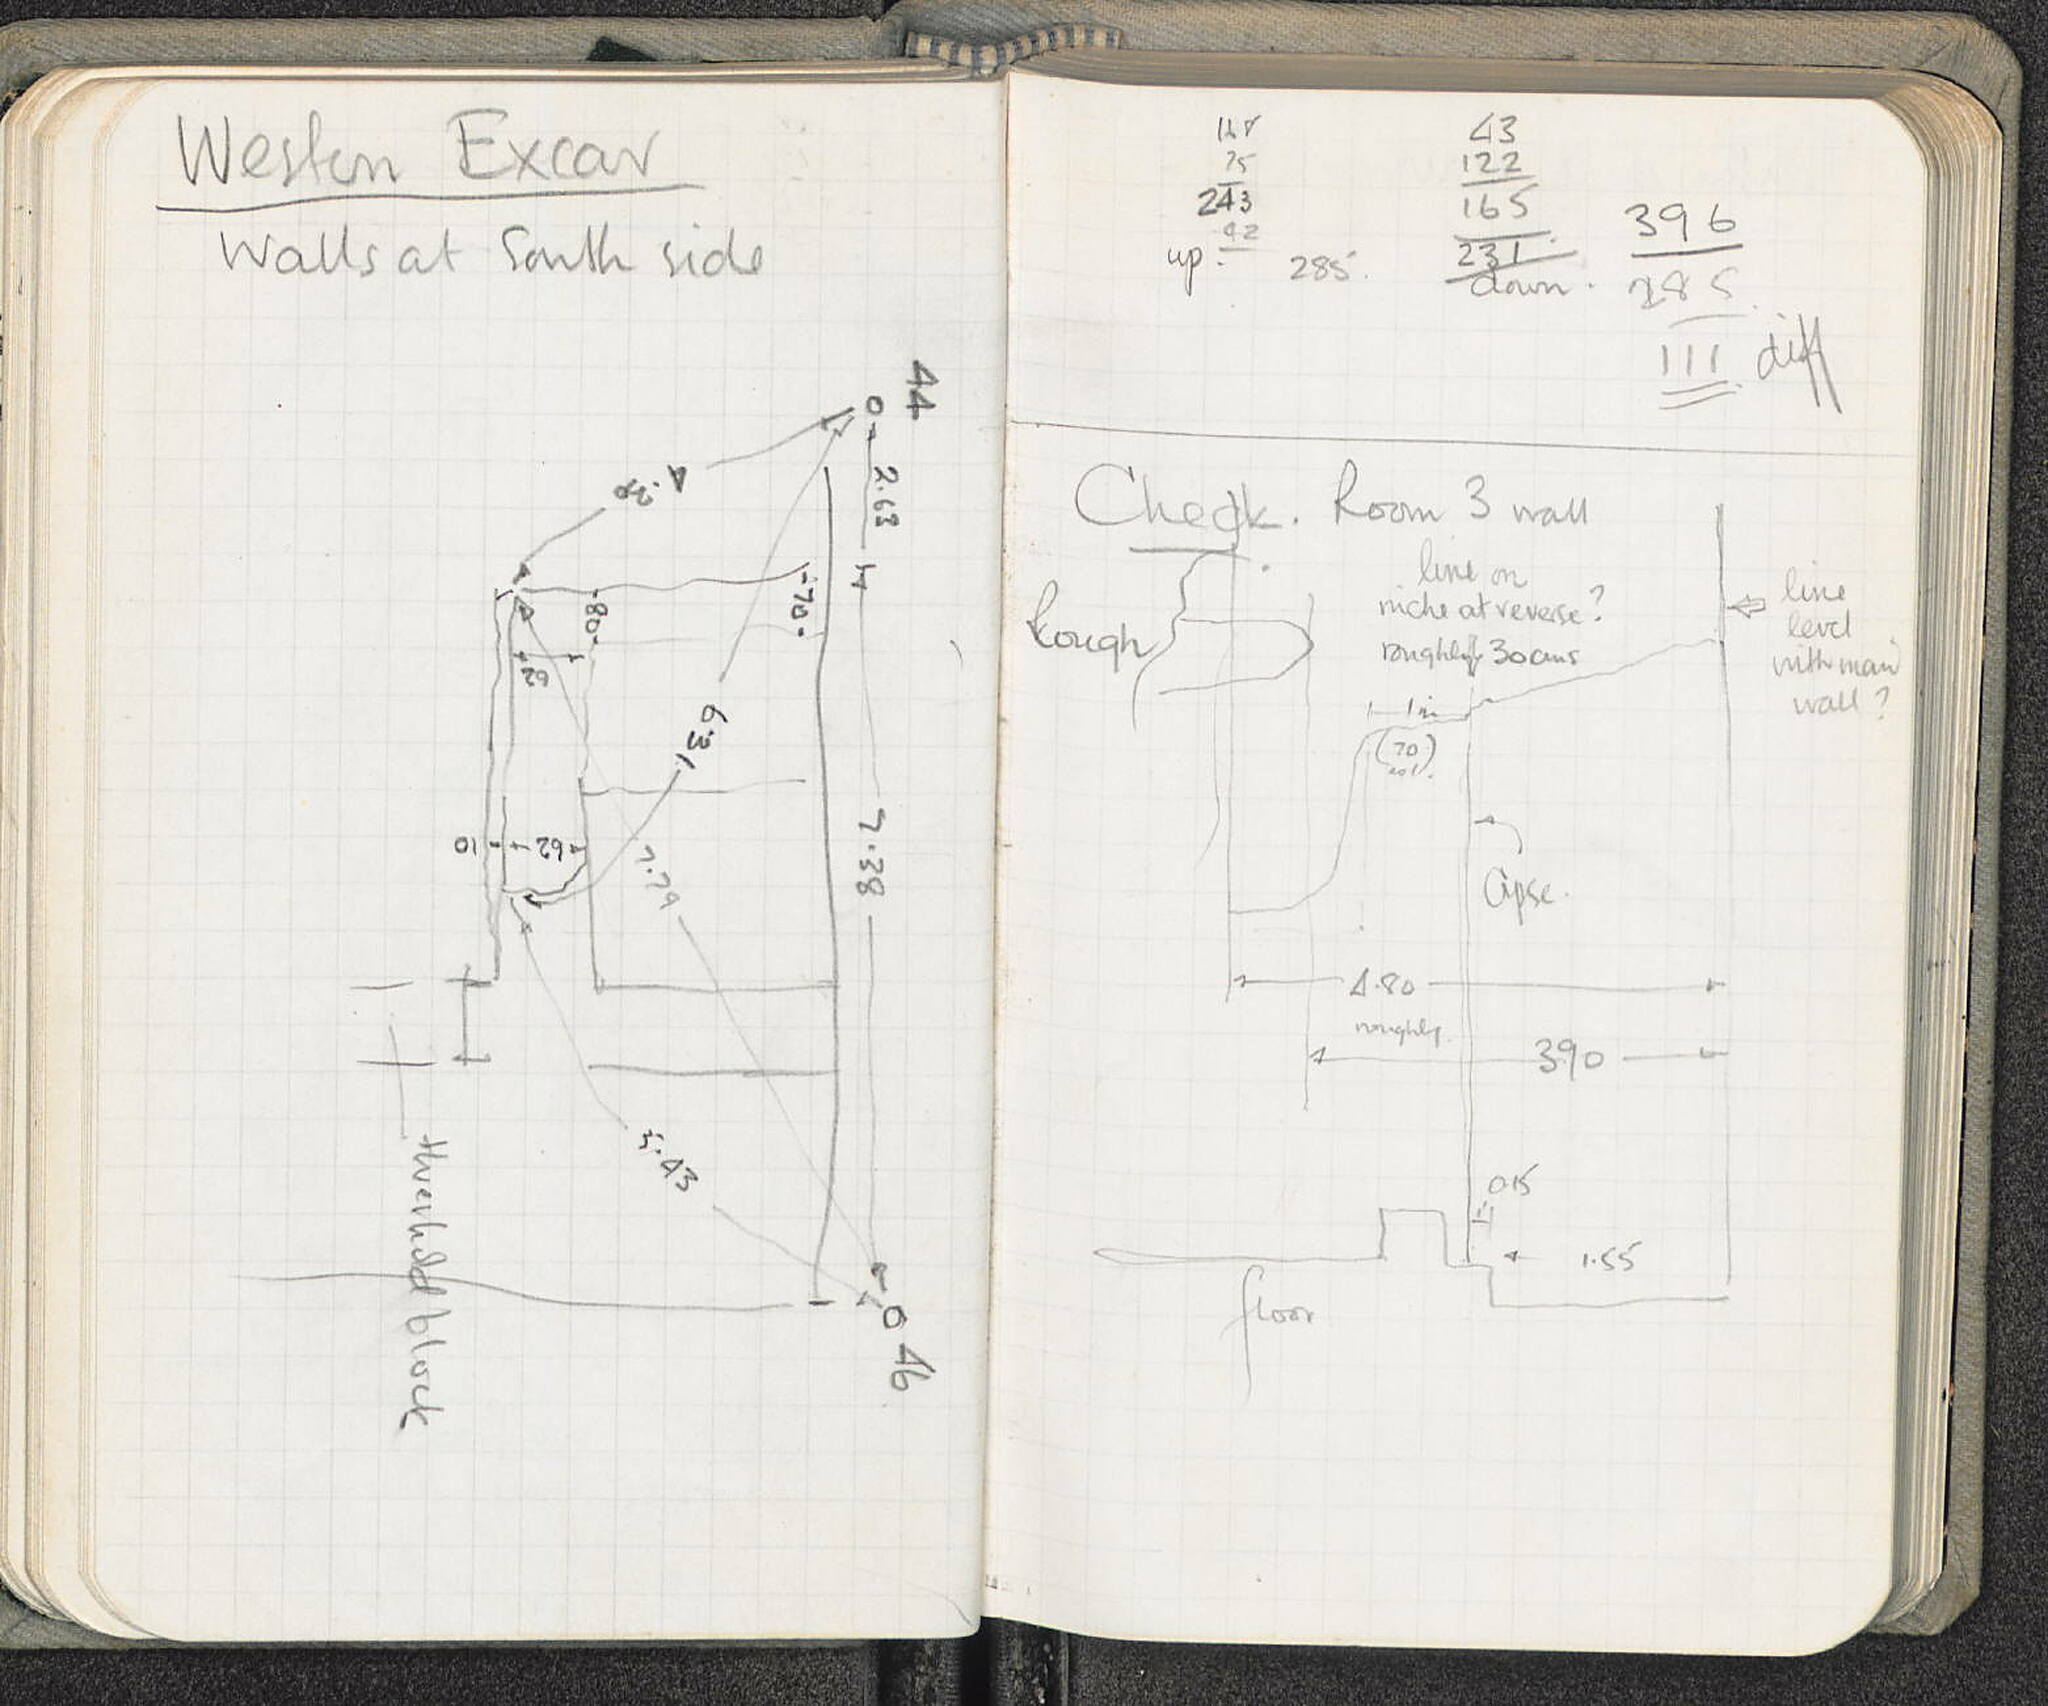 Western Excav
Walls at South side
44
0
2.63
4.30
-70-
-80-
62
6.31
10
62
7.79
7.38
5.43
threshold block
0
46
168
75
243
42
up.
285.
43
122
165
231
down.
396
285
111 diff
Check. Room 3 wall
Rough
line on
niche at reverse?
roughly 30 cms
line
level
with main
wall?
1m
(70)
Apse.
4.80
roughly
390
0.15
1.55
floor